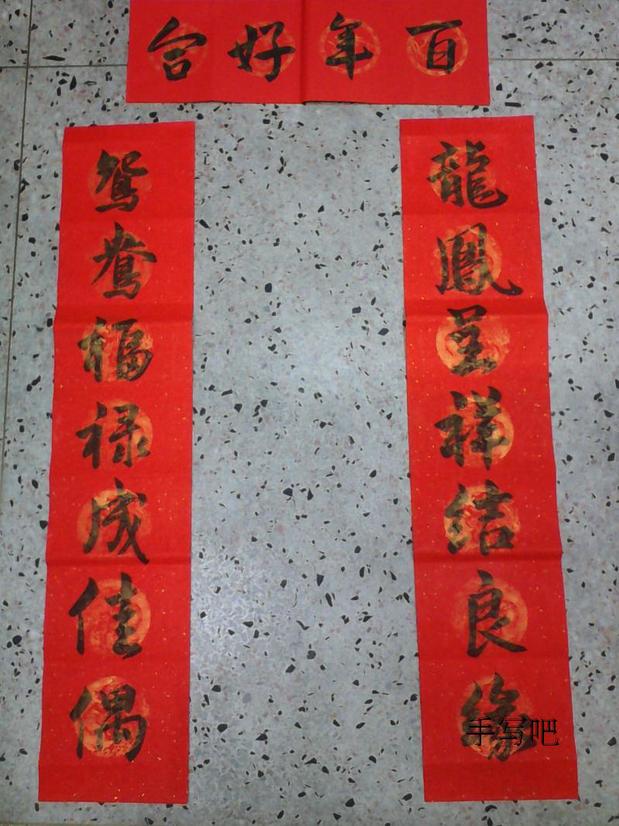 百年好合
龍鳳呈祥结良缘
鴛鴦福禄成佳偶
手写吧